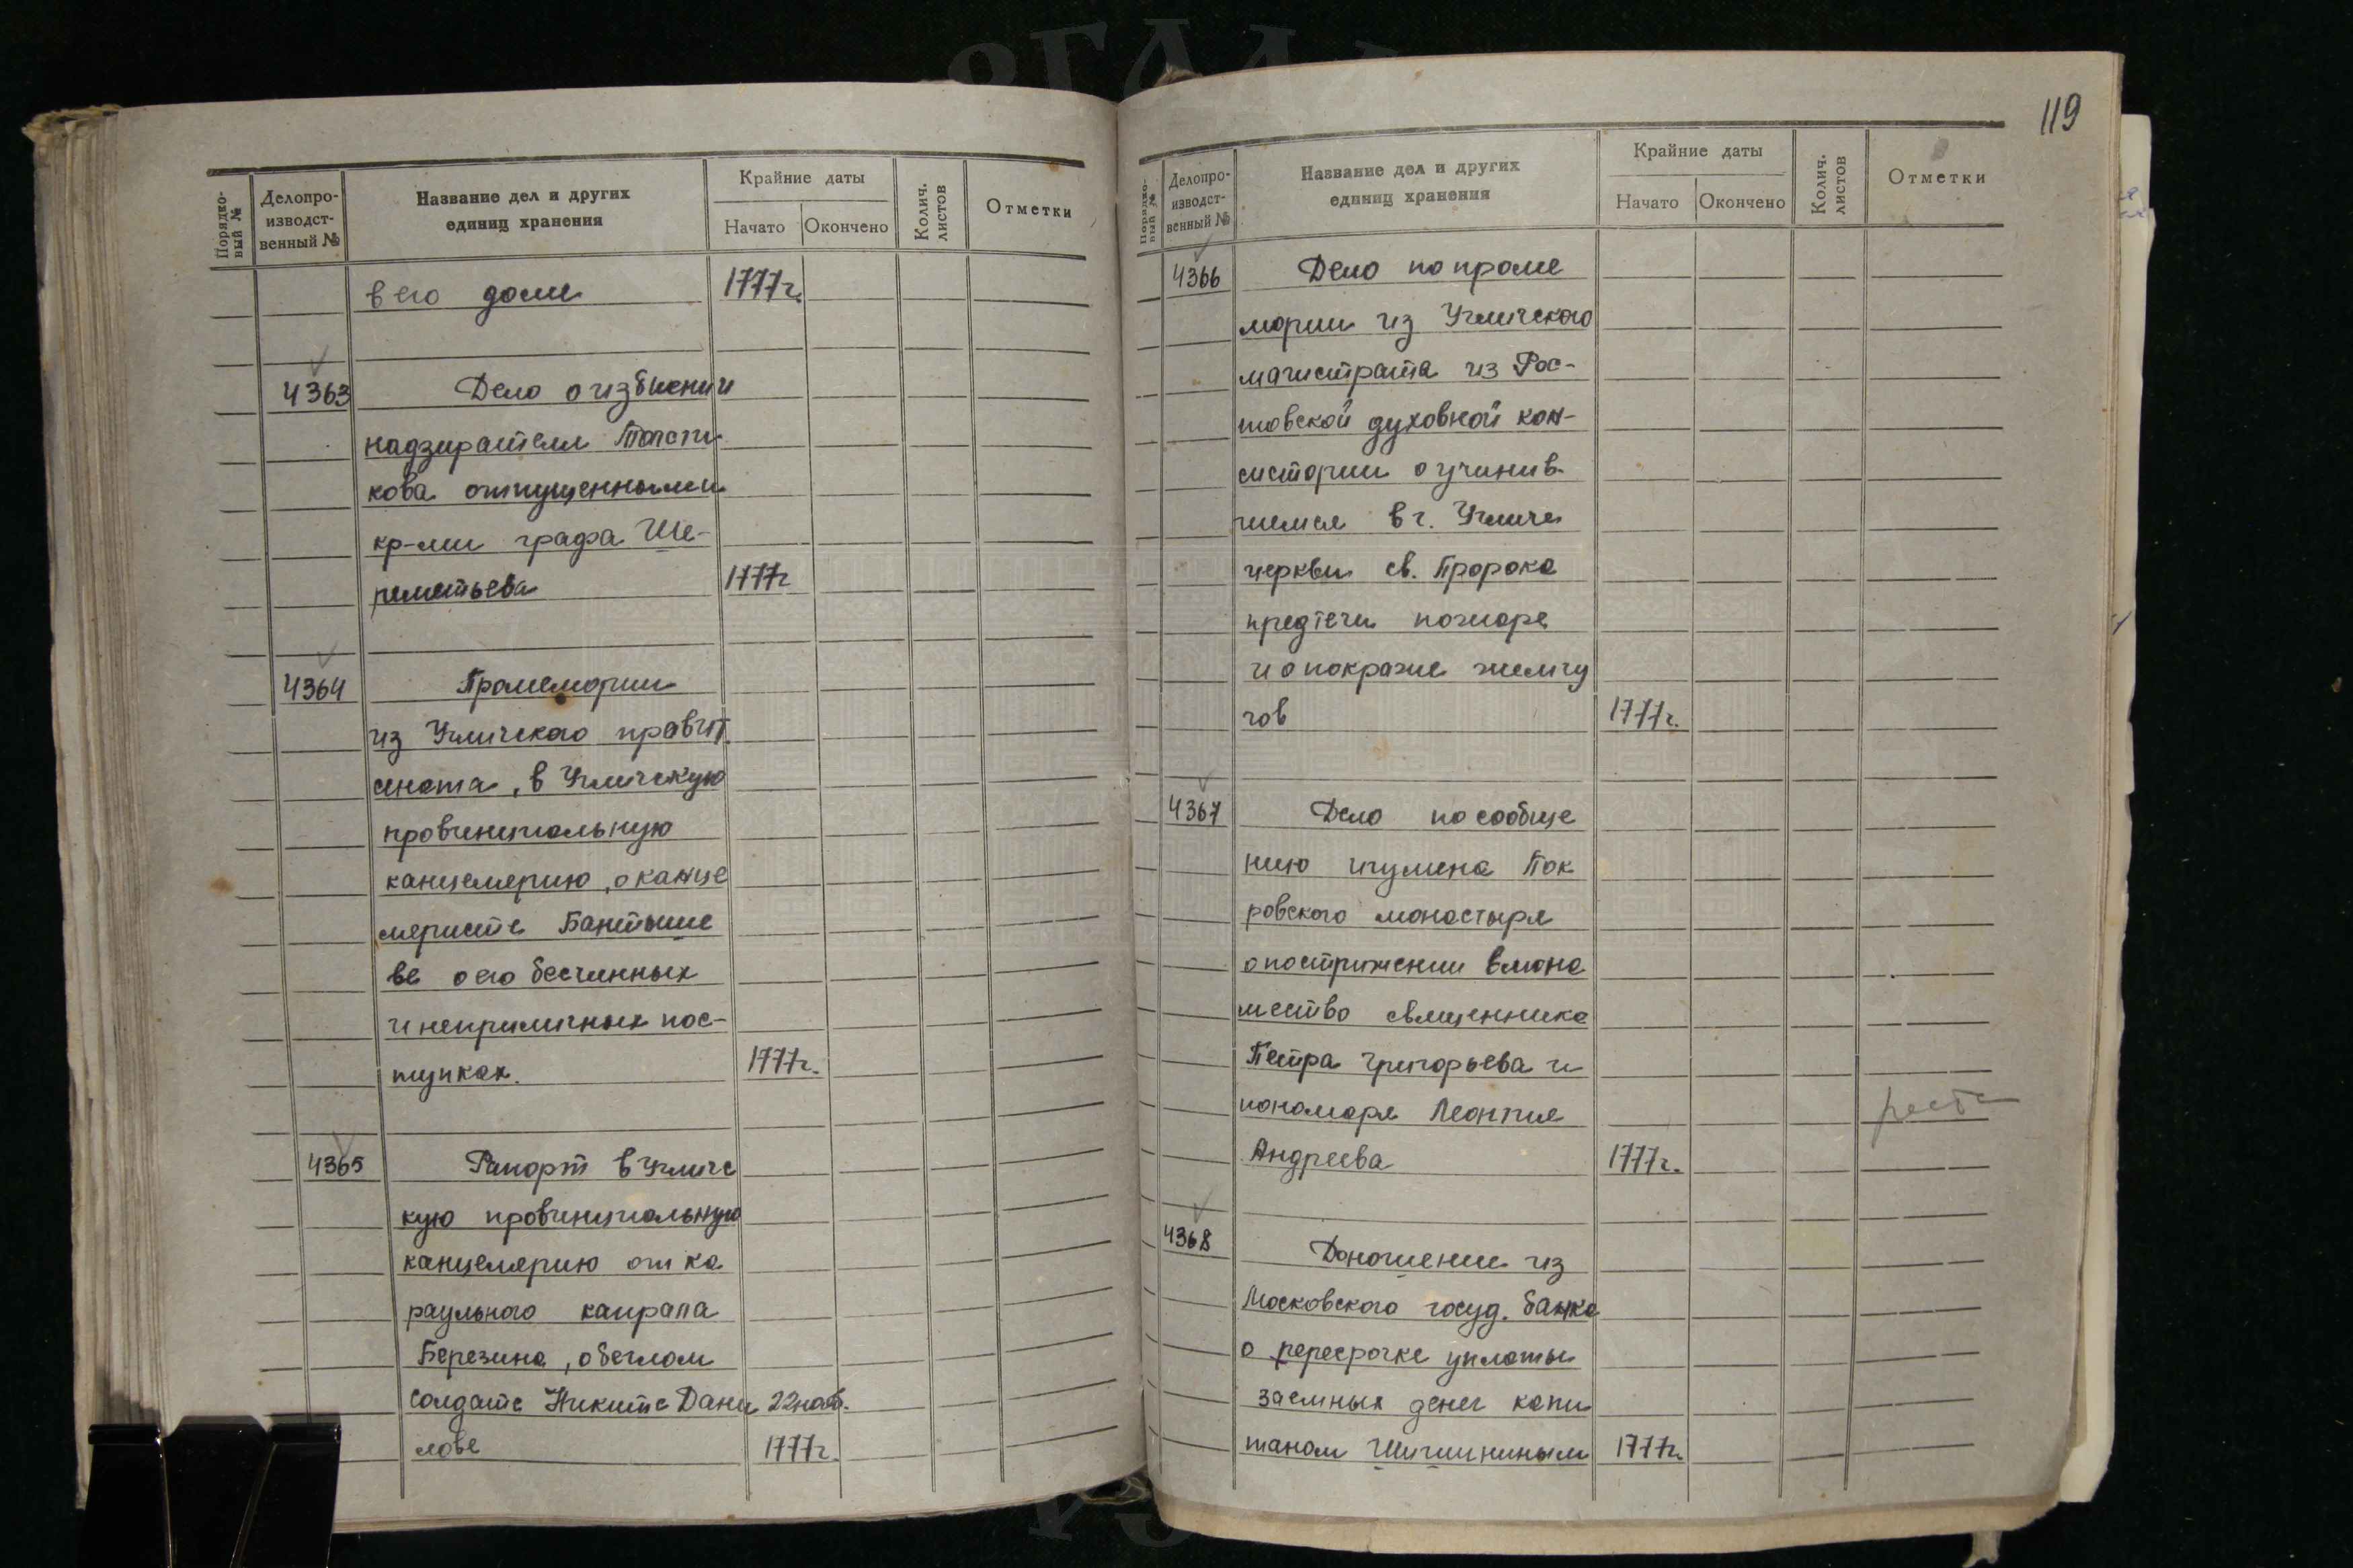 Порядко-
вый №
Делопро-
изводст-
венный №
Название дел и других
единиц хранения
Крайние даты
Начато
Окончено
Колич.
листов
Отметки
в его доме 1777г.
4363 Дело о избиении
надзирателя
кова отпущенными
кр-ми графа Ше-
реметьева 1777г
4364 Промемории
из Угличского правит.
сената, в Угличскую
провинциальную
канцелярию, о канце
ляристе Бантыше
ве о его бесчинных
и неприличных пос-
тупках. 1777г.
4365 Рапорт в Угличс
кую провинциальную
канцелярию от ка
раульного капрала
Березина, о беглом
солдате Никите Дани 22 нояб.
лове 1777г.
119
Порядко-
вый №
Делопро-
изводст-
венный №
Название дел и других
единиц хранения
Крайние даты
Начато
Окончено
Колич.
листов
Отметки
4366 Дело по проме
мории из Угличского
магистрата из Рос-
товской духовной кон-
систории о учинив-
шемся в г. Угличе
церкви св. Пророка
предтечи пожаре
и о покраже жемчу
гов 1777г.
4367 Дело по сообще
нию игумена Пок
ровского монастыря
о пострижении в мона
шество священника
Петра Григорьева и
пономаря Леонтия
Андреева 1777г.
4368 Доношении из
Московского госуд. банка
о пересрочке уплаты
заемных денег капи
таном Шишкиным 1777г.